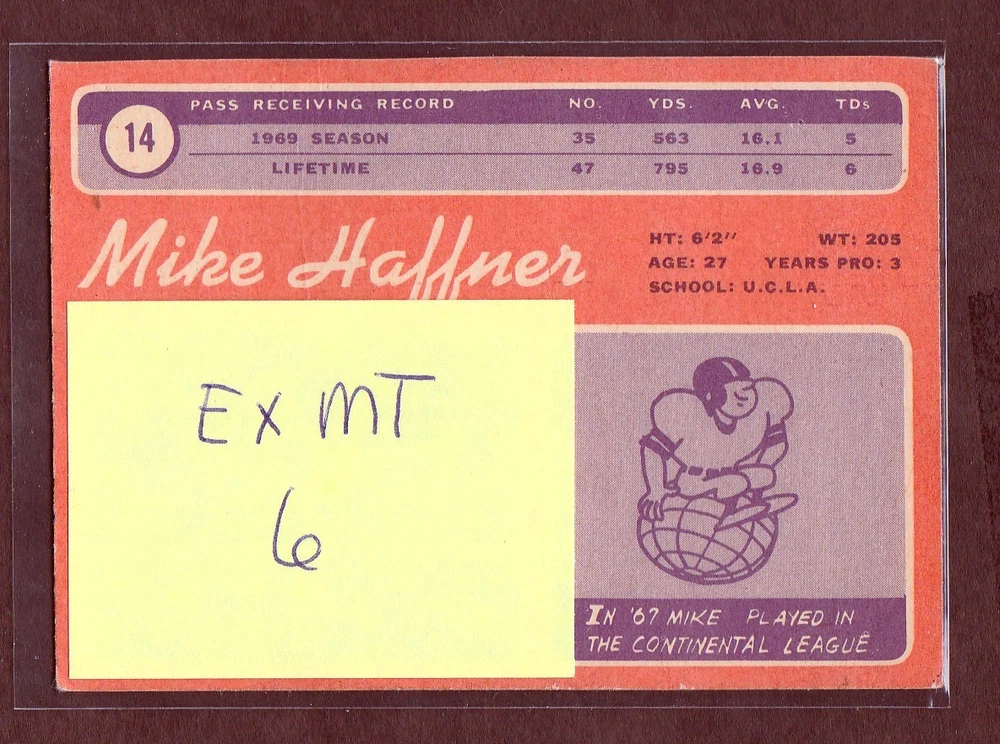 14
PASS RECEIVING RECORD NO. YDS. AVG. TDs
1969 SEASON 35 563 16.1 5
LIFETIME 47 795 16.9 6
Mike Haffner
HT: 6'2" WT: 205
AGE: 27 YEARS PRO: 3
SCHOOL: U.C.L.A.
EX MT
6
IN '67 MIKE PLAYED IN
THE CONTINENTAL LEAGUE